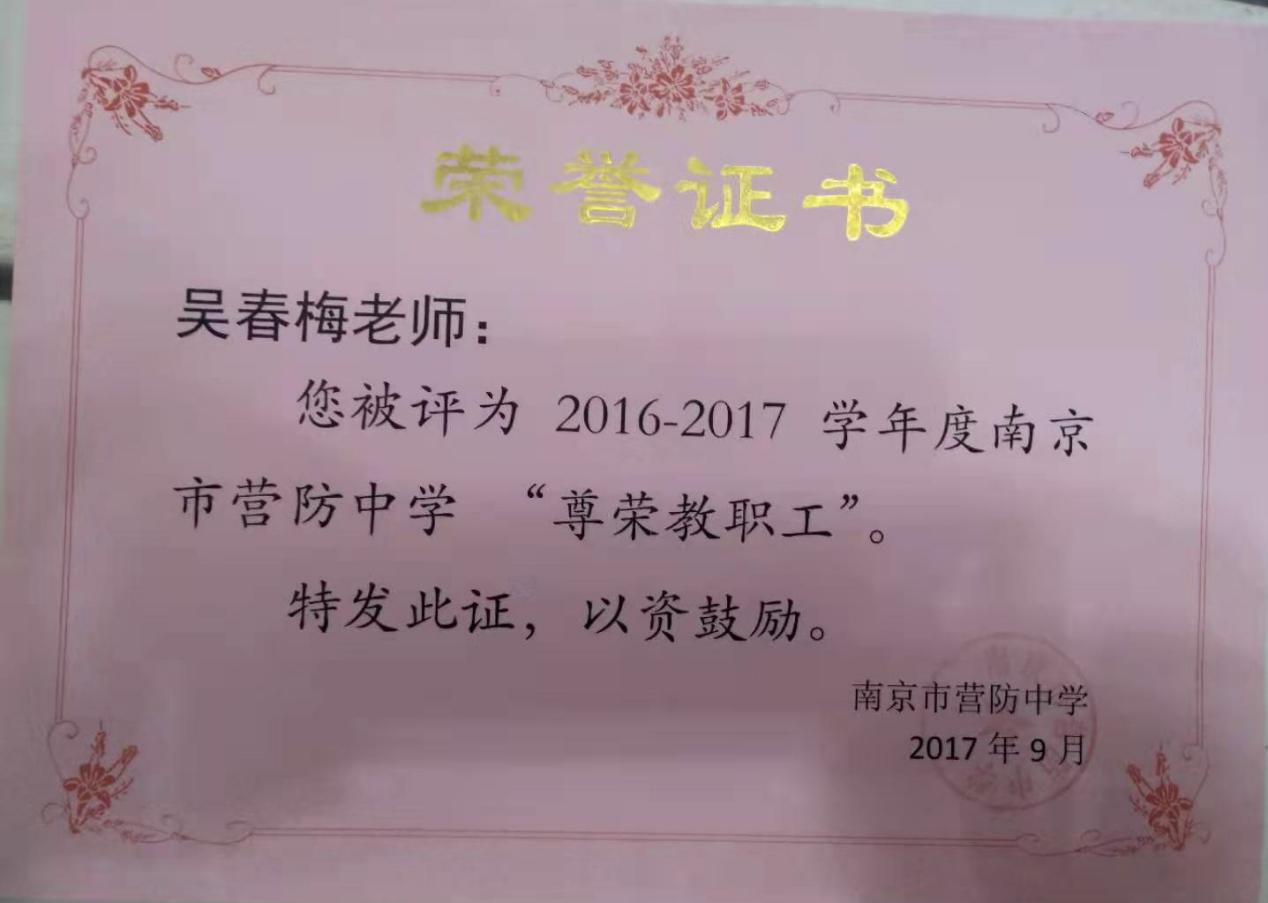 荣誉证书
吴春梅老师：
您被评为 2016-2017 学年度南京
市营防中学 “尊荣教职工”。
特发此证，以资鼓励。
南京市营防中学
2017 年 9 月